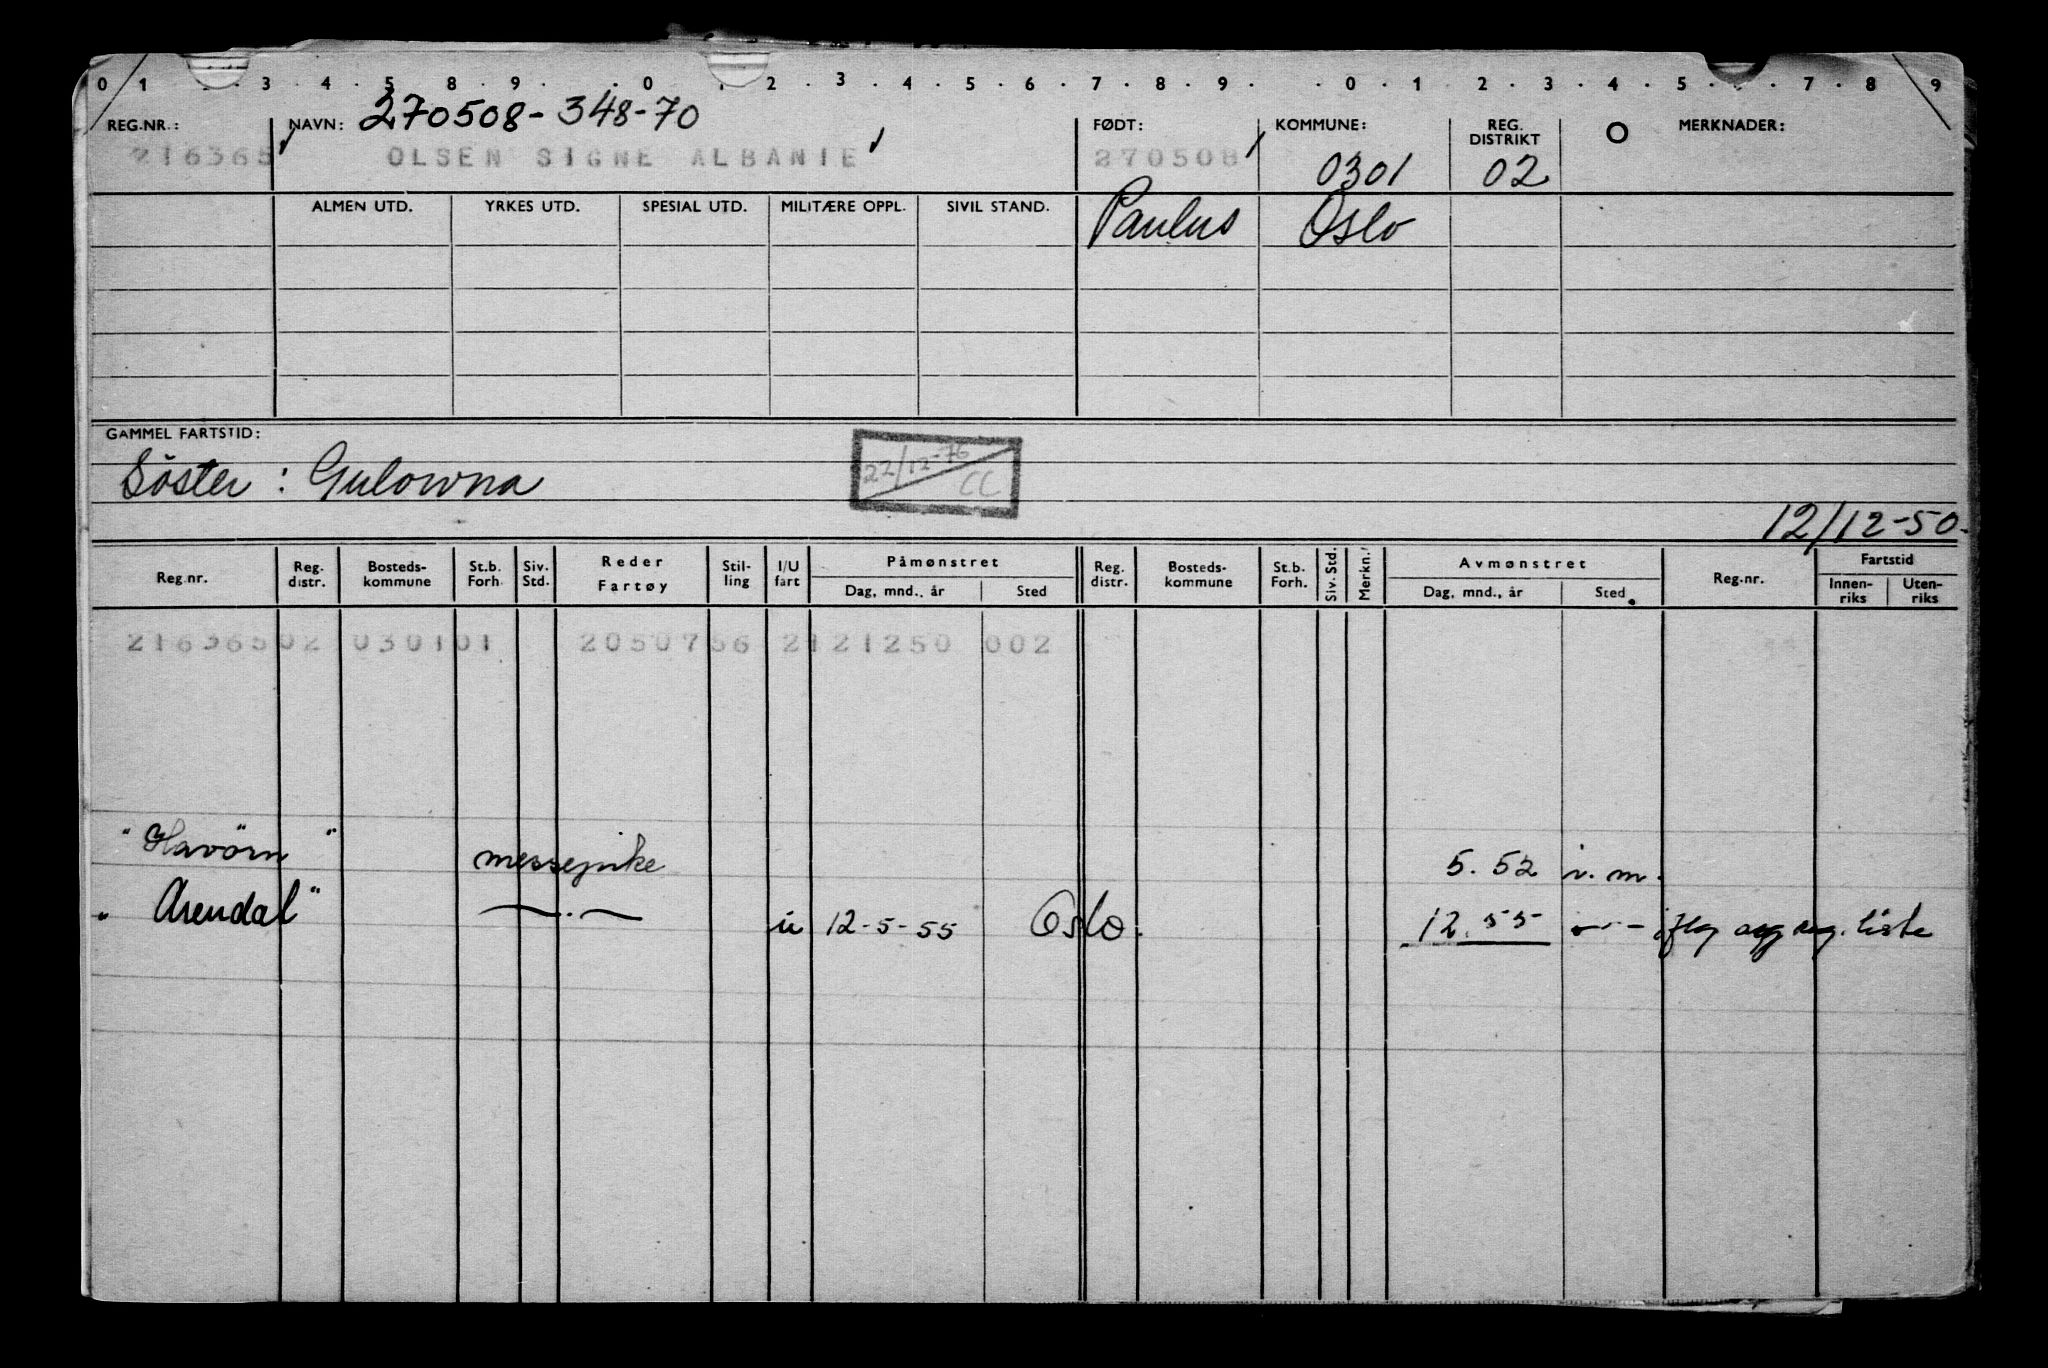 0 1 . . 3 . 4 . 5 . 8 . 9 . . 0 . 1 . 2 . 3 . 4 . 5 . 6 . 7 . 8 . 9 . . 0 . 1 . 2 . 3 . 4 . 5 . . 7 . 8 . 9
REG.NR.: NAVN: 270508-348-70 FØDT: KOMMUNE: REG. DISTRIKT O MERKNADER:
216365 OLSEN SIGNE ALBANIE 270508 0301 02
ALMEN UTD. YRKES UTD. SPESIAL UTD. MILITÆRE OPPL. SIVIL STAND. Paulus Oslo
GAMMEL FARTSTID:
Söster : Gulowna 22/12-76 CC
12/12-50.
Reg.nr. Reg. distr. Bosteds-kommune St.b. Forh. Siv. Std. Reder Fartøy Stil-ling I/U fart Påmønstret Dag, mnd., år Sted Reg. distr. Bosteds-kommune St.b. Forh. Siv. Std. Merkn. Avmønstret Dag, mnd., år Sted Reg.nr. Fartstid Innen-riks Uten-riks
21636502 030101 2050756 2121250 002
"Havörn" messepike 5.52 i.m.
"Arendal" —.— u 12-5-55 Oslo. 12.55 —"— liste